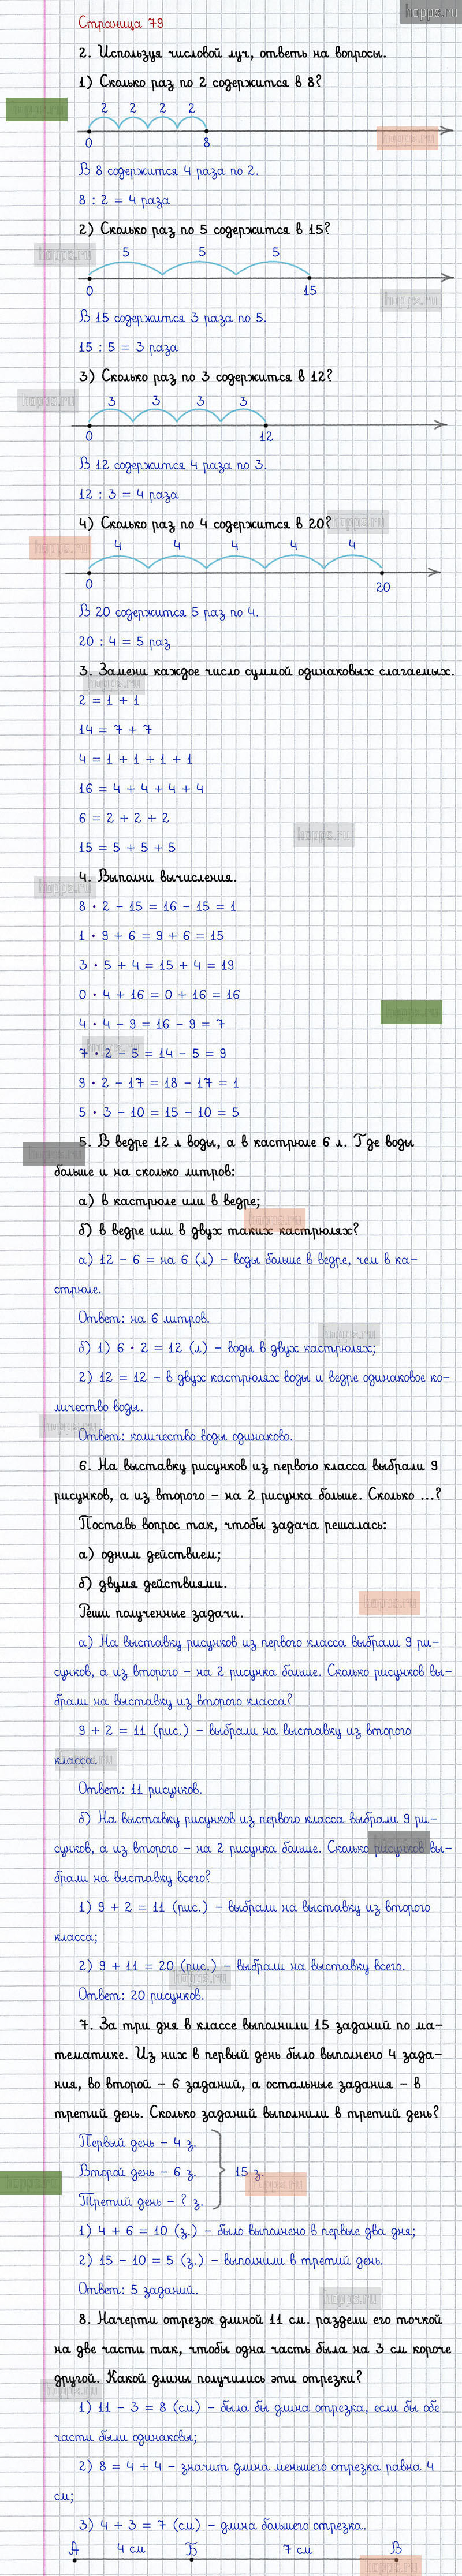 hopps.ru
Страница 79
2. Используя числовой луч, ответь на вопросы.
1) Сколько раз по 2 содержится в 8?
2 2 2 2
0 8
В 8 содержится 4 раза по 2.
8 : 2 = 4 раза
2) Сколько раз по 5 содержится в 15?
5 5 5
0 15
В 15 содержится 3 раза по 5.
15 : 5 = 3 раза
3) Сколько раз по 3 содержится в 12?
3 3 3 3
0 12
В 12 содержится 4 раза по 3.
12 : 3 = 4 раза
4) Сколько раз по 4 содержится в 20?
4 4 4 4 4
0 20
В 20 содержится 5 раз по 4.
20 : 4 = 5 раз
3. Замени каждое число суммой одинаковых слагаемых.
2 = 1 + 1
14 = 7 + 7
4 = 1 + 1 + 1 + 1
16 = 4 + 4 + 4 + 4
6 = 2 + 2 + 2
15 = 5 + 5 + 5
4. Выполни вычисления.
8 · 2 – 15 = 16 – 15 = 1
1 · 9 + 6 = 9 + 6 = 15
3 · 5 + 4 = 15 + 4 = 19
0 · 4 + 16 = 0 + 16 = 16
4 · 4 – 9 = 16 – 9 = 7
7 · 2 – 5 = 14 – 5 = 9
9 · 2 – 17 = 18 – 17 = 1
5 · 3 – 10 = 15 – 10 = 5
5. В ведре 12 л воды, а в кастрюле 6 л. Где воды
больше и на сколько литров:
а) в кастрюле или в ведре;
б) в ведре или в двух таких кастрюлях?
а) 12 – 6 = на 6 (л) – воды больше в ведре, чем в ка-
стрюле.
Ответ: на 6 литров.
б) 1) 6 · 2 = 12 (л) – воды в двух кастрюлях;
2) 12 = 12 – в двух кастрюлях воды и ведре одинаковое ко-
личество воды.
Ответ: количество воды одинаково.
6. На выставку рисунков из первого класса выбрали 9
рисунков, а из второго – на 2 рисунка больше. Сколько ...?
Поставь вопрос так, чтобы задача решалась:
а) одним действием;
б) двумя действиями.
Реши полученные задачи.
а) На выставку рисунков из первого класса выбрали 9 ри-
сунков, а из второго – на 2 рисунка больше. Сколько рисунков вы-
брали на выставку из второго класса?
9 + 2 = 11 (рис.) – выбрали на выставку из второго
класса.
Ответ: 11 рисунков.
б) На выставку рисунков из первого класса выбрали 9 ри-
сунков, а из второго – на 2 рисунка больше. Сколько рисунков вы-
брали на выставку всего?
1) 9 + 2 = 11 (рис.) – выбрали на выставку из второго
класса;
2) 9 + 11 = 20 (рис.) – выбрали на выставку всего.
Ответ: 20 рисунков.
7. За три дня в классе выполнили 15 заданий по ма-
тематике. Из них в первый день было выполнено 4 зада-
ния, во второй – 6 заданий, а остальные задания – в
третий день. Сколько заданий выполнили в третий день?
Первый день – 4 з.
Второй день – 6 з. 15 з.
Третий день – ? з.
1) 4 + 6 = 10 (з.) – было выполнено в первые два дня;
2) 15 – 10 = 5 (з.) – выполнили в третий день.
Ответ: 5 заданий.
8. Начерти отрезок длиной 11 см. раздели его точкой
на две части так, чтобы одна часть была на 3 см короче
другой. Какой длины получились эти отрезки?
1) 11 – 3 = 8 (см) – была бы длина отрезка, если бы обе
части были одинаковы;
2) 8 = 4 + 4 – значит длина меньшего отрезка равна 4
см;
3) 4 + 3 = 7 (см) – длина большего отрезка.
А 4 см Б 7 см В